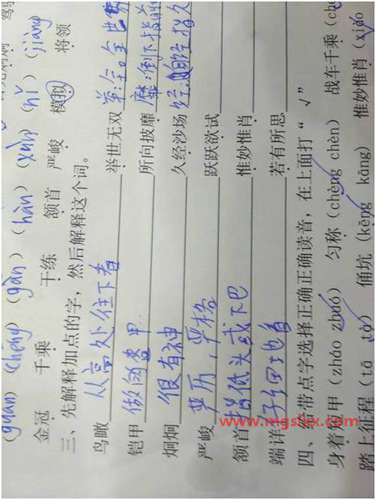 (guān) (chéng) (gàn) (hàn) (xùn) (nǐ) (jiàng)
金冠 千乘 干练 颔首 严峻 模拟 将领
三、先解释加点的字，然后解释这个词。
鸟瞰 从高处往下看 举世无双 举:全 全世
铠甲 所向披靡 靡:倒下 指前
炯炯 很有神 久经沙场
严峻 严厉,严格 跃跃欲试
颔首 指低头或下巴 惟妙惟肖
端详 仔细地看 若有所思
四、给带点字选择正确正确读音，在上面打“√”
身着铠甲（zháo zhuó） 匀称（chèng chèn） 战车千乘（ch
踏上征程（tā tà） 俑坑（kēng kāng） 惟妙惟肖（xiào